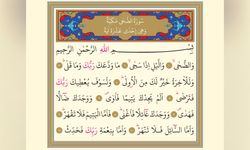 سورة الضحى مكية
وهي احدى عشرة اية
بِسْــــــمِ اللهِ الرَّحْمٰنِ الرَّحِيمِ
وَالضُّحٰىۙ وَالَّيْلِ اِذَا سَجٰىۙ مَا وَدَّعَكَ رَبُّكَ وَمَا قَلٰىۜ
وَلَلْاٰخِرَةُ خَيْرٌ لَكَ مِنَ الْاُو۫لٰىۜ وَلَسَوْفَ يُعْط۪يكَ رَبُّكَ
فَتَرْضٰىۜ اَلَمْ يَجِدْكَ يَت۪يمًا فَاٰوٰىۖ وَوَجَدَكَ ضَٓالًّا
فَهَدٰىۖ وَوَجَدَكَ عَٓائِلًا فَاَغْنٰىۜ فَاَمَّا الْيَت۪يمَ فَلَا تَقْهَرْۜ
وَاَمَّا السَّٓائِلَ فَلَا تَنْهَرْۜ وَاَمَّا بِنِعْمَةِ رَبِّكَ فَحَدِّثْ